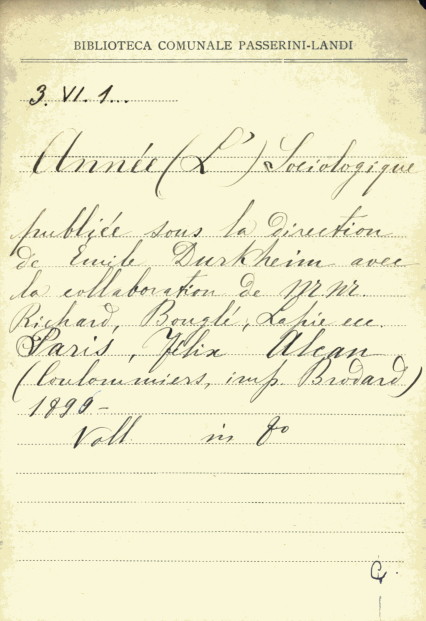 BIBLIOTECA COMUNALE PASSERINI-LANDI
3. VI. 1...
Année (L') Sociologique
publiée sous la direction
de Emile Durkheim avec
la collaboration de MM.
Richard, Bouglé, Lapie ecc.
Paris, Félix Alcan
(Coulommiers, imp. Brodard)
1896-
Voll. in 8o